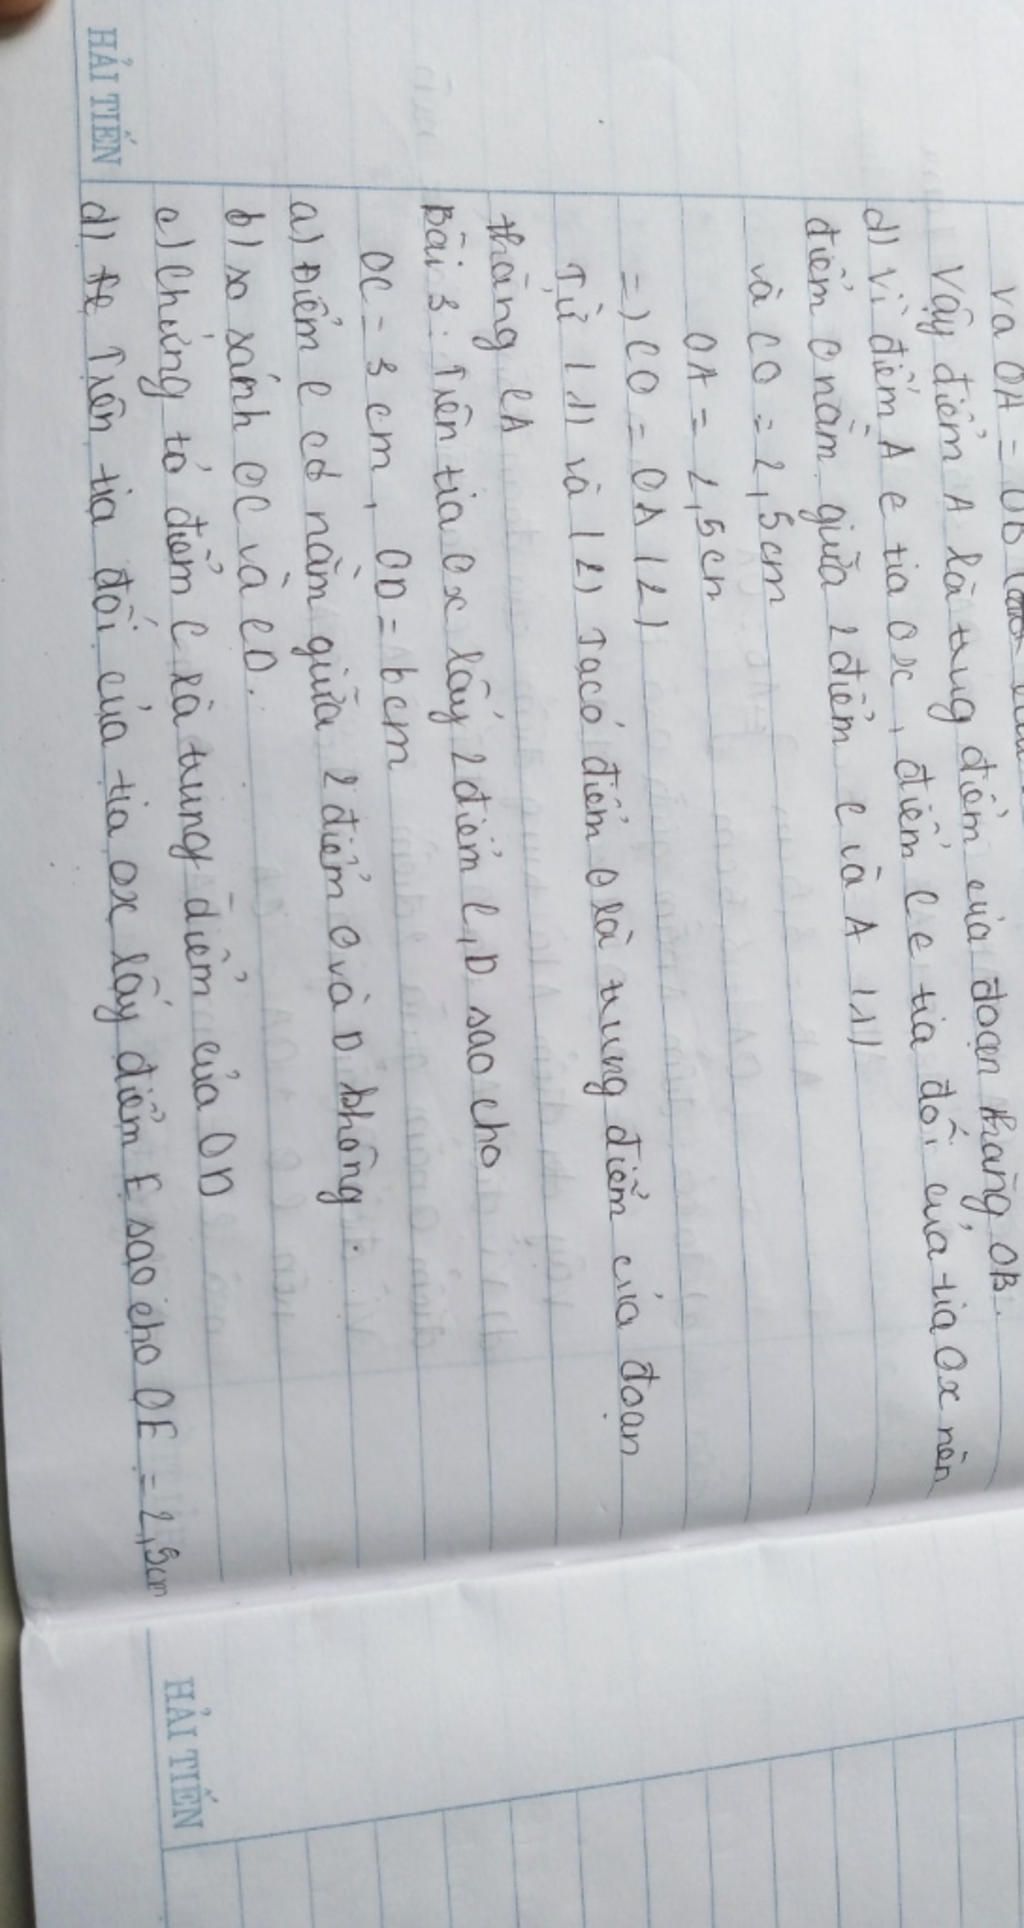 và OA = OB
Vậy điểm A là trung điểm của đoạn thẳng OB.
d) Vì điểm A e tia Ox, điểm C e tia đối của tia Ox nên
điểm O nằm giữa 2 điểm C và A (1)
và CO = 2,5cm
OA = 2,5cm
=) CO = OA (2)
Từ (1) và (2) Ta có điểm O là trung điểm của đoạn
thẳng CA
Bài 3: Trên tia Ox lấy 2 điểm C, D sao cho
OC = 3 cm, OD = 6 cm
a) Điểm C có nằm giữa 2 điểm O và D không.
b) so sánh OC và CD.
c) Chứng tỏ điểm C là trung điểm của OD
d) Trên tia đối của tia Ox lấy điểm E sao cho OE = 2,5cm
HẢI TIẾN
HẢI TIẾN